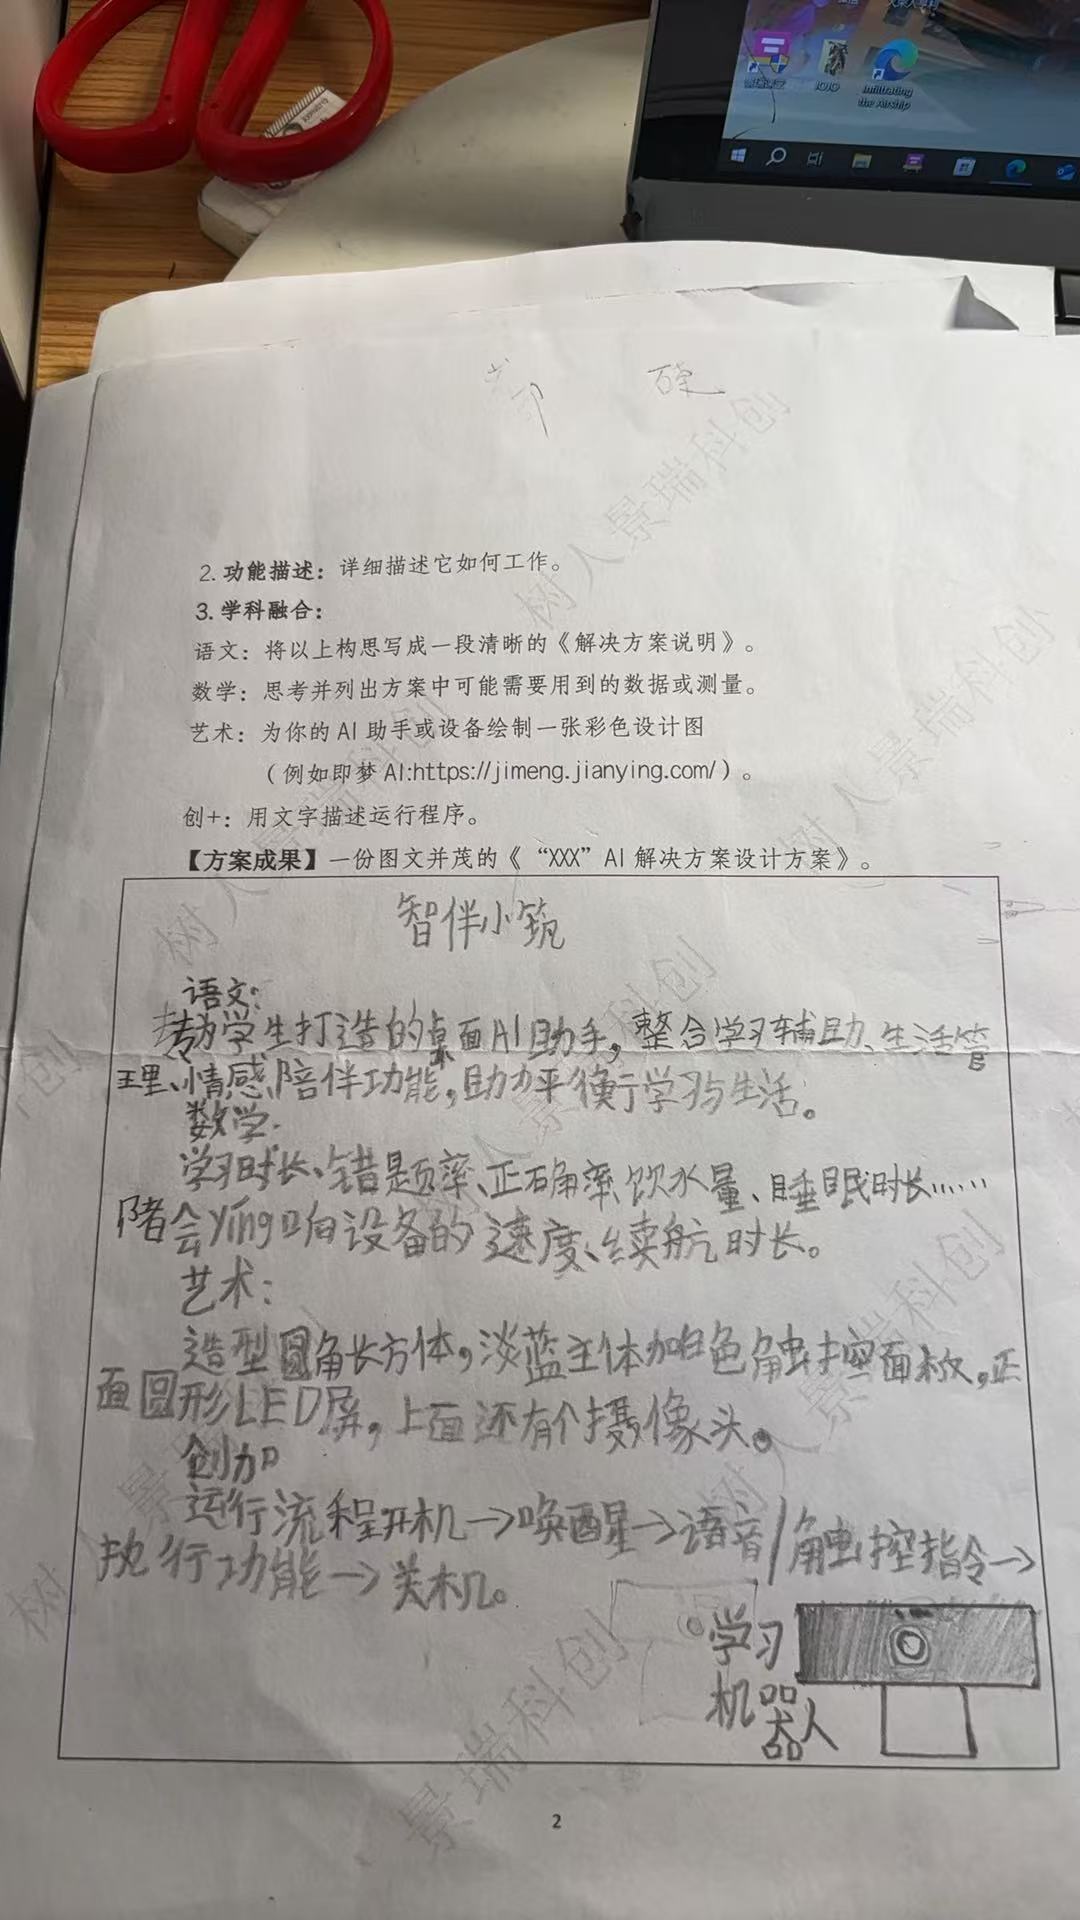 JOJO
Infiltrating
the Airship
2. 功能描述：详细描述它如何工作。
3. 学科融合：
语文：将以上构思写成一段清晰的《解决方案说明》。
数学：思考并列出方案中可能需要用到的数据或测量。
艺术：为你的 AI 助手或设备绘制一张彩色设计图
（例如即梦 AI:https://jimeng.jianying.com/）。
创+：用文字描述运行程序。
【方案成果】一份图文并茂的《“XXX”AI 解决方案设计方案》。
智伴小筑
语文：
专为学生打造的桌面AI助手，整合学习辅助、生活管
理、情感陪伴功能，助力平衡学习与生活。
数学.
学习时长、错题率、正确率、饮水量、睡眠时长……
都会yǐng响设备的速度、续航时长。
艺术：
造型圆角长方体，淡蓝主体加白色触控面板，正
面圆形LED屏，上面还有个摄像头。
创加
运行流程开机→唤醒→语音/触控指令→
执行功能→关机。
学习
机器人
2
树人景瑞科创
树人景瑞科创
树人景瑞科创
树人景瑞科创